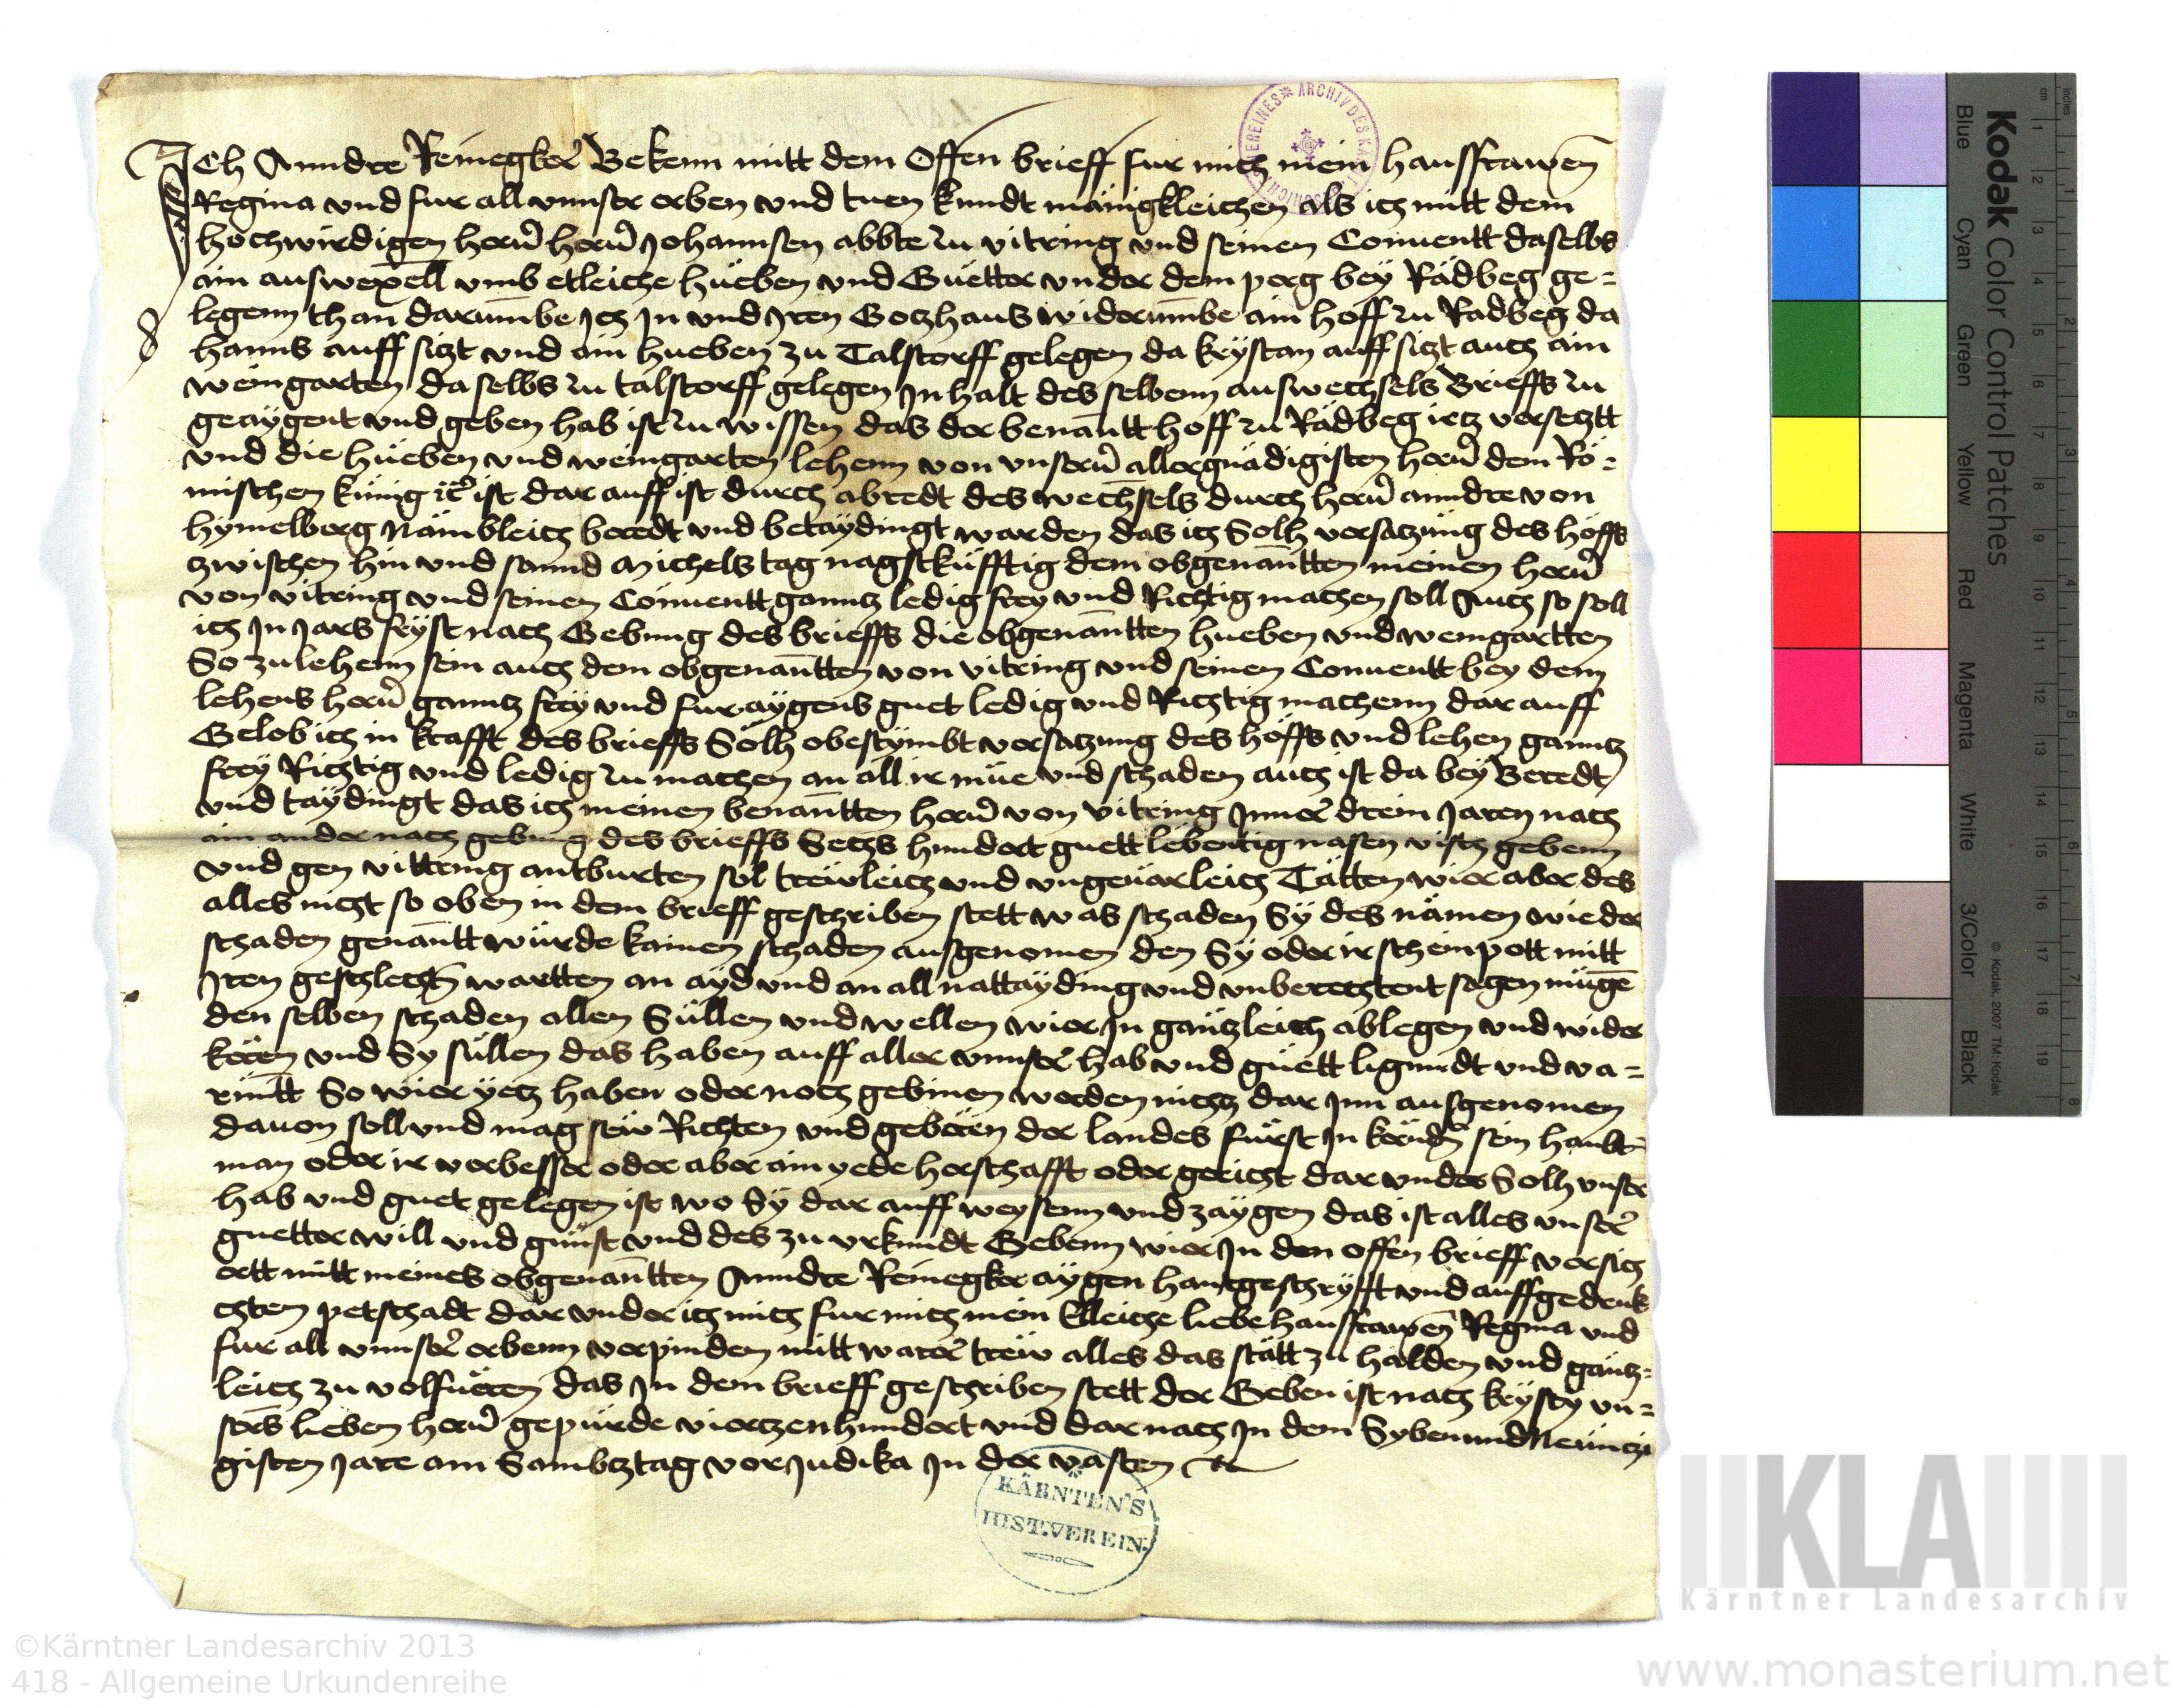 Ich Anndre Reinegker Bekenn mitt dem Offen brieff fur mich mein hausfrawen
Regina vnd fur all vnnser erben vnd tuen kundt mänigkleichen als ich mitt dem
hochwirdigen herñ herñ Johannsen abbte zu vitring vnd seinen Conuentt daselbs
ain auswexell vmb etleiche hueben vnd Guetter vnder dem perg bey Rädbeg ge-
legenn than darumbe Ich In vnd Iren Gotzhaus widerumbe ain hoff zu Radbeg da
hanns auff sitzt vnd ain hueben zu Talstorff gelegen da krystan auff sitzt auch ain
weingarten daselbs zu talstorff gelegen Inhalt des selbenn auswechsels Brieffs zu
geaygent vnd geben hab ist zu wissen das der benantt hoff zu Rädbeg ietz versetztt
vnd die hueben vnd weingarten lehenn von vnserñ allergnädigisten herñ dem Rö-
mischen künig ist dar auff ist durch abredt des wechsels durch herñ anndre von
hymelberg Nämbleich beredt vnd betäydingt warden das ich Solh versatzung des hoffs
zwischen hin vnd sannd Michels tag nagstküfftig dem obgenantten meinen herñ
von vitring vnd seinen Conuentt ganntz ledig frey vnd Richtig machen soll Auch so soll
ich In Jars fryst nach Gebung des brieffs die obgenantten hueben vnd weingartten
So zu lehenn sein auch dem obgenantten von vitring vnd seinen Conuentt bey dem
lehens herñ ganntz frey vnd fur aygens guet ledig vnd Richtig machenn dar auff
Gelob ich in krafft des brieffs Sölh obestymbt versatzung des höffs vnd lehen ganntz
frey Richtig vnd ledig zu machen an all ir müe vnd schaden auch ist da bey Beredt
vnd täydingt das ich meinen benantten herñ von vitring Inner drein Jaren nach
ain ander nach gebung des brieffs Sechs hundert guett lebentig nasen visch gebenn
vnd gen vittring antburten sol trewleich vnd vngeuarleich Tätten wier aber des
alles nicht so oben in dem brieff geschriben stett was schaden Sy des nämen wie der
schaden genantt würde kainen schaden ausgenomen den Sy oder ir schein pott mitt
Iren geschlechtn wartten an ayd vnd an all nattayding vnd vnberechtent sagen mügen
den selben schaden allen Süllen vnd wellen wier In gäntzleich ablegen vnd wider
keren vnd Sy süllen das haben auff aller vnnser hab vnd guett ligundt vnd va-
rintt So wier yetz haben oder noch gebinen werden nichtz dar Inn ausgenomen
dauon soll vnd mag sew Richten vnd geweren der landes fürst In kernden sein haubt-
man oder ir verbesser oder aber ain yede herschafft oder gericht dar vnder Solh vnser
hab vnd guet gelegen ist wo Sy dar auff weysenn vnd zaygen das ist alles vnser
guetter will vnd gunst vnd des zu vrkundt Gebenn wier In den offen brieff versich
ertt mitt meines obgenantten Anndre Reinegker aygen hantgeschryfft vnd auffgedruk
chten petschadt dar vnder ich mich fur mich mein Elleiche liebe hausfrawen Regina vnd
fur all vnnser erbenn verpinden mitt warer trew alles das stätt zu halden vnd gäntz-
leich zu volfueren das In dem brieff geschriben stett der Geben ist nach krysty vn-
sers lieben herñ gepurde vierzenhundert vnd dar nach In dem Sybenundneuntzi
gisten Jare am Sambtztag vor Judika In der vasten
KÄRNTEN'S
HIST.VEREIN.
Kodak Color Control Patches
Blue Cyan Green Yellow Red Magenta White 3/Color Black
© Kodak, 2007 TM: Kodak
KLA
Kärntner Landesarchiv
©Kärntner Landesarchiv 2013
418 - Allgemeine Urkundenreihe
www.monasterium.net